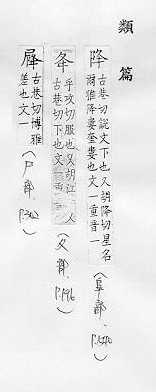 類篇
降 古巷切說文下也又胡降切星名
爾雅降婁奎婁也文一重音一
(阜部、
夅 乎攻切服也又胡江 人
古巷切下也文一重音
(夂部、P.196)
古巷切博雅
差也文一
(尸部、P.302)